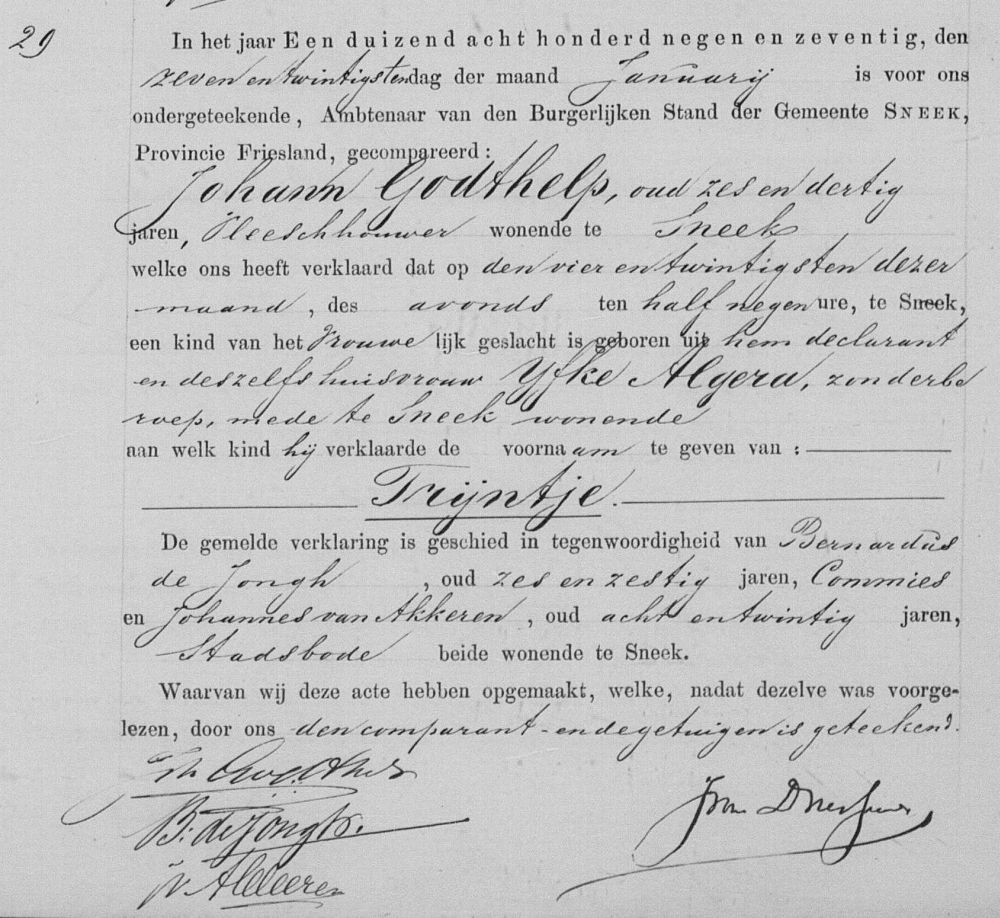 29
In het jaar Een duizend acht honderd negen en zeventig, den
zeven en twintigsten dag der maand Januarij is voor ons
ondergeteekende, Ambtenaar van den Burgerlijken Stand der Gemeente SNEEK,
Provincie Friesland, gecompareerd:
Johann Godthelp, oud zes en dertig
jaren, Vleeschhouwer wonende te Sneek
welke ons heeft verklaard dat op den vier en twintigsten dezer
maand, des avonds ten half negen ure, te Sneek,
een kind van het Vrouwelijk geslacht is geboren uit hem declarant
en deszelfs huisvrouw Yfke Algera, zonder be
roep, mede te Sneek wonende
aan welk kind hij verklaarde de voornaam te geven van:
Trijntje.
De gemelde verklaring is geschied in tegenwoordigheid van Bernardus
de Jongh, oud zes en zestig jaren, Commies
en Johannes van Akkeren, oud acht en twintig jaren,
Stadsbode beide wonende te Sneek.
Waarvan wij deze acte hebben opgemaakt, welke, nadat dezelve was voorge-
lezen, door ons den comparant en de getuigen is geteekend.
B: de Jongh.
JV Akkeren